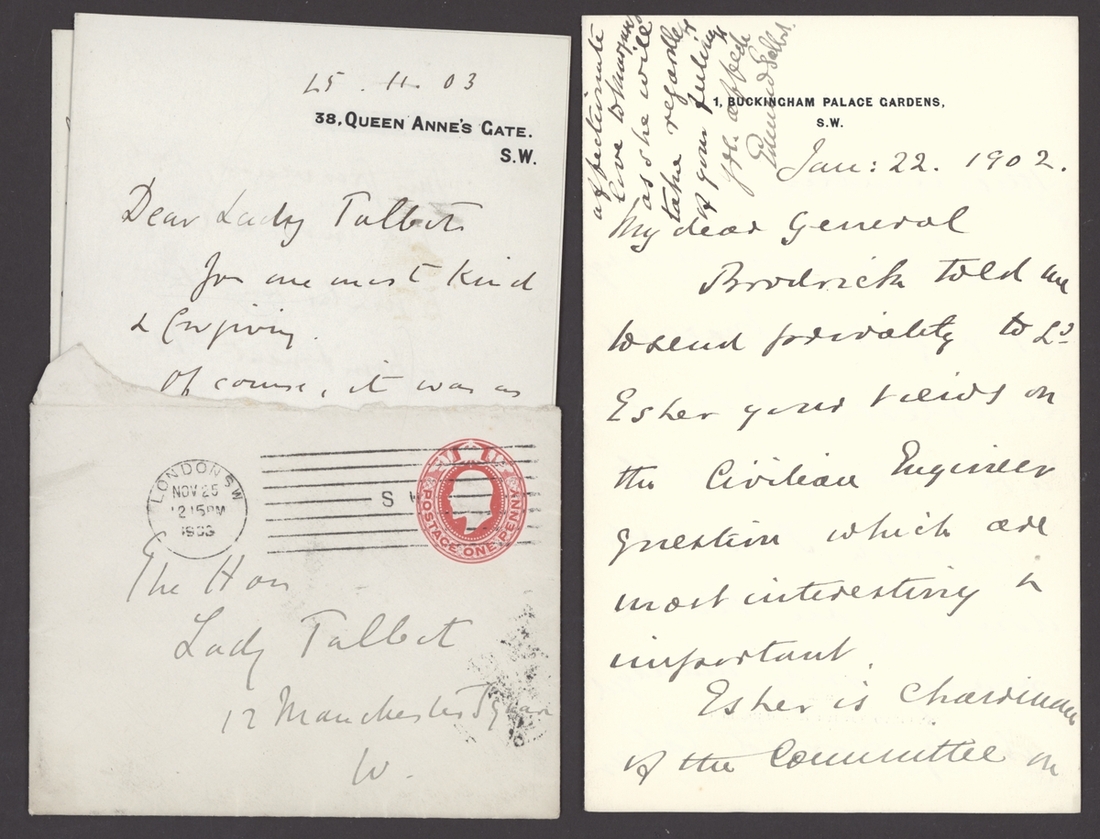 25 . 11 . 03
38, QUEEN ANNE'S GATE.
S.W.
Dear Lady Talbot
you are most kind
& forgiving.
Of course, it was as
LONDON S.W
NOV 25
12 15 PM
1903
S W
POSTAGE ONE PENNY
The Hon
Lady Talbot
12 Manchester Square
W.
affectionate
love to
as she will
take regardless
of your feelings
1, BUCKINGHAM PALACE GARDENS,
S.W.
Jan: 22. 1902.
My dear General
Brodrick told me
to send privately to Ld
Esher your views on
the Civilian Engineer
question which are
most interesting &
important.
Esher is Chairman
of the Committee on